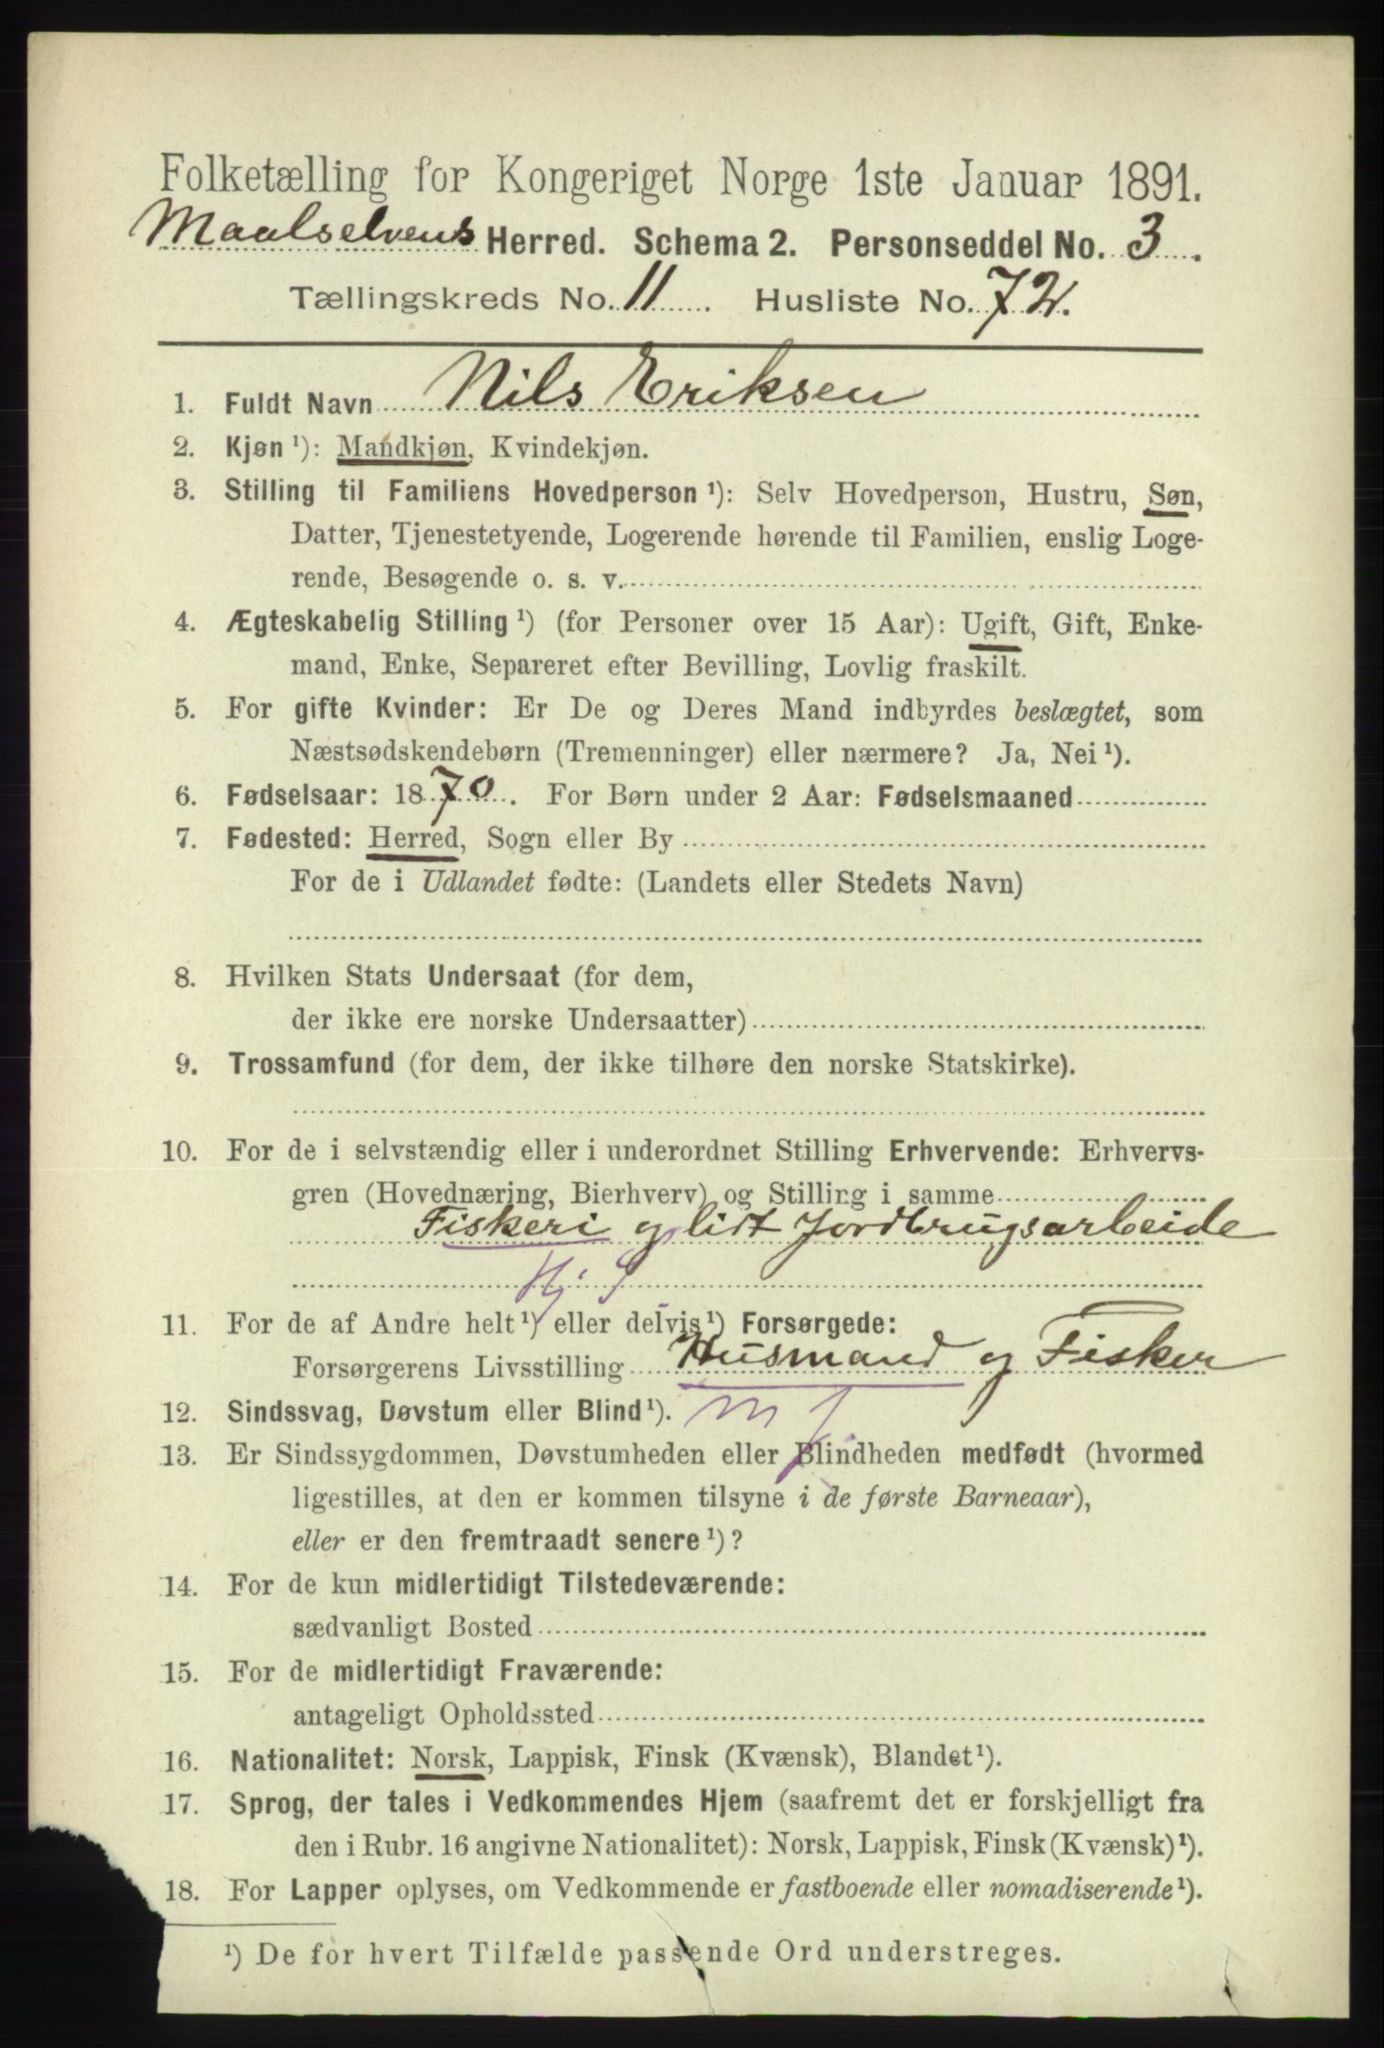 Folketælling for Kongeriget Norge 1ste Januar 1891.
Maalselvens Herred. Schema 2. Personseddel No. 3.
Tællingskreds No. 11. Husliste No. 72.
1. Fuldt Navn Nils Eriksen
2. Kjøn ¹): Mandkjøn, Kvindekjøn.
3. Stilling til Familiens Hovedperson ¹): Selv Hovedperson, Hustru, Søn,
Datter, Tjenestetyende, Logerende hørende til Familien, enslig Loge-
rende, Besøgende o. s. v.
4. Ægteskabelig Stilling ¹) (for Personer over 15 Aar): Ugift, Gift, Enke-
mand, Enke, Separeret efter Bevilling, Lovlig fraskilt.
5. For gifte Kvinder: Er De og Deres Mand indbyrdes beslægtet, som
Næstsødskendebørn (Tremenninger) eller nærmere? Ja, Nei ¹).
6. Fødselsaar: 1870. For Børn under 2 Aar: Fødselsmaaned
7. Fødested: Herred, Sogn eller By
For de i Udlandet fødte: (Landets eller Stedets Navn)
8. Hvilken Stats Undersaat (for dem,
der ikke ere norske Undersaatter)
9. Trossamfund (for dem, der ikke tilhøre den norske Statskirke).
10. For de i selvstændig eller i underordnet Stilling Erhvervende: Erhvervs-
gren (Hovednæring, Bierhverv) og Stilling i samme
Fiskeri og lidt Jordbrugsarbeide
11. For de af Andre helt ¹) eller delvis ¹) Forsørgede:
Forsørgerens Livsstilling Husmand og Fisker
12. Sindssvag, Døvstum eller Blind ¹).
13. Er Sindssygdommen, Døvstumheden eller Blindheden medfødt (hvormed
ligestilles, at den er kommen tilsyne i de første Barneaar),
eller er den fremtraadt senere ¹)?
14. For de kun midlertidigt Tilstedeværende:
sædvanligt Bosted
15. For de midlertidigt Fraværende:
antageligt Opholdssted
16. Nationalitet: Norsk, Lappisk, Finsk (Kvænsk), Blandet ¹).
17. Sprog, der tales i Vedkommendes Hjem (saafremt det er forskjelligt fra
den i Rubr. 16 angivne Nationalitet): Norsk, Lappisk, Finsk (Kvænsk) ¹).
18. For Lapper oplyses, om Vedkommende er fastboende eller nomadiserende ¹).
¹) De for hvert Tilfælde passende Ord understreges.